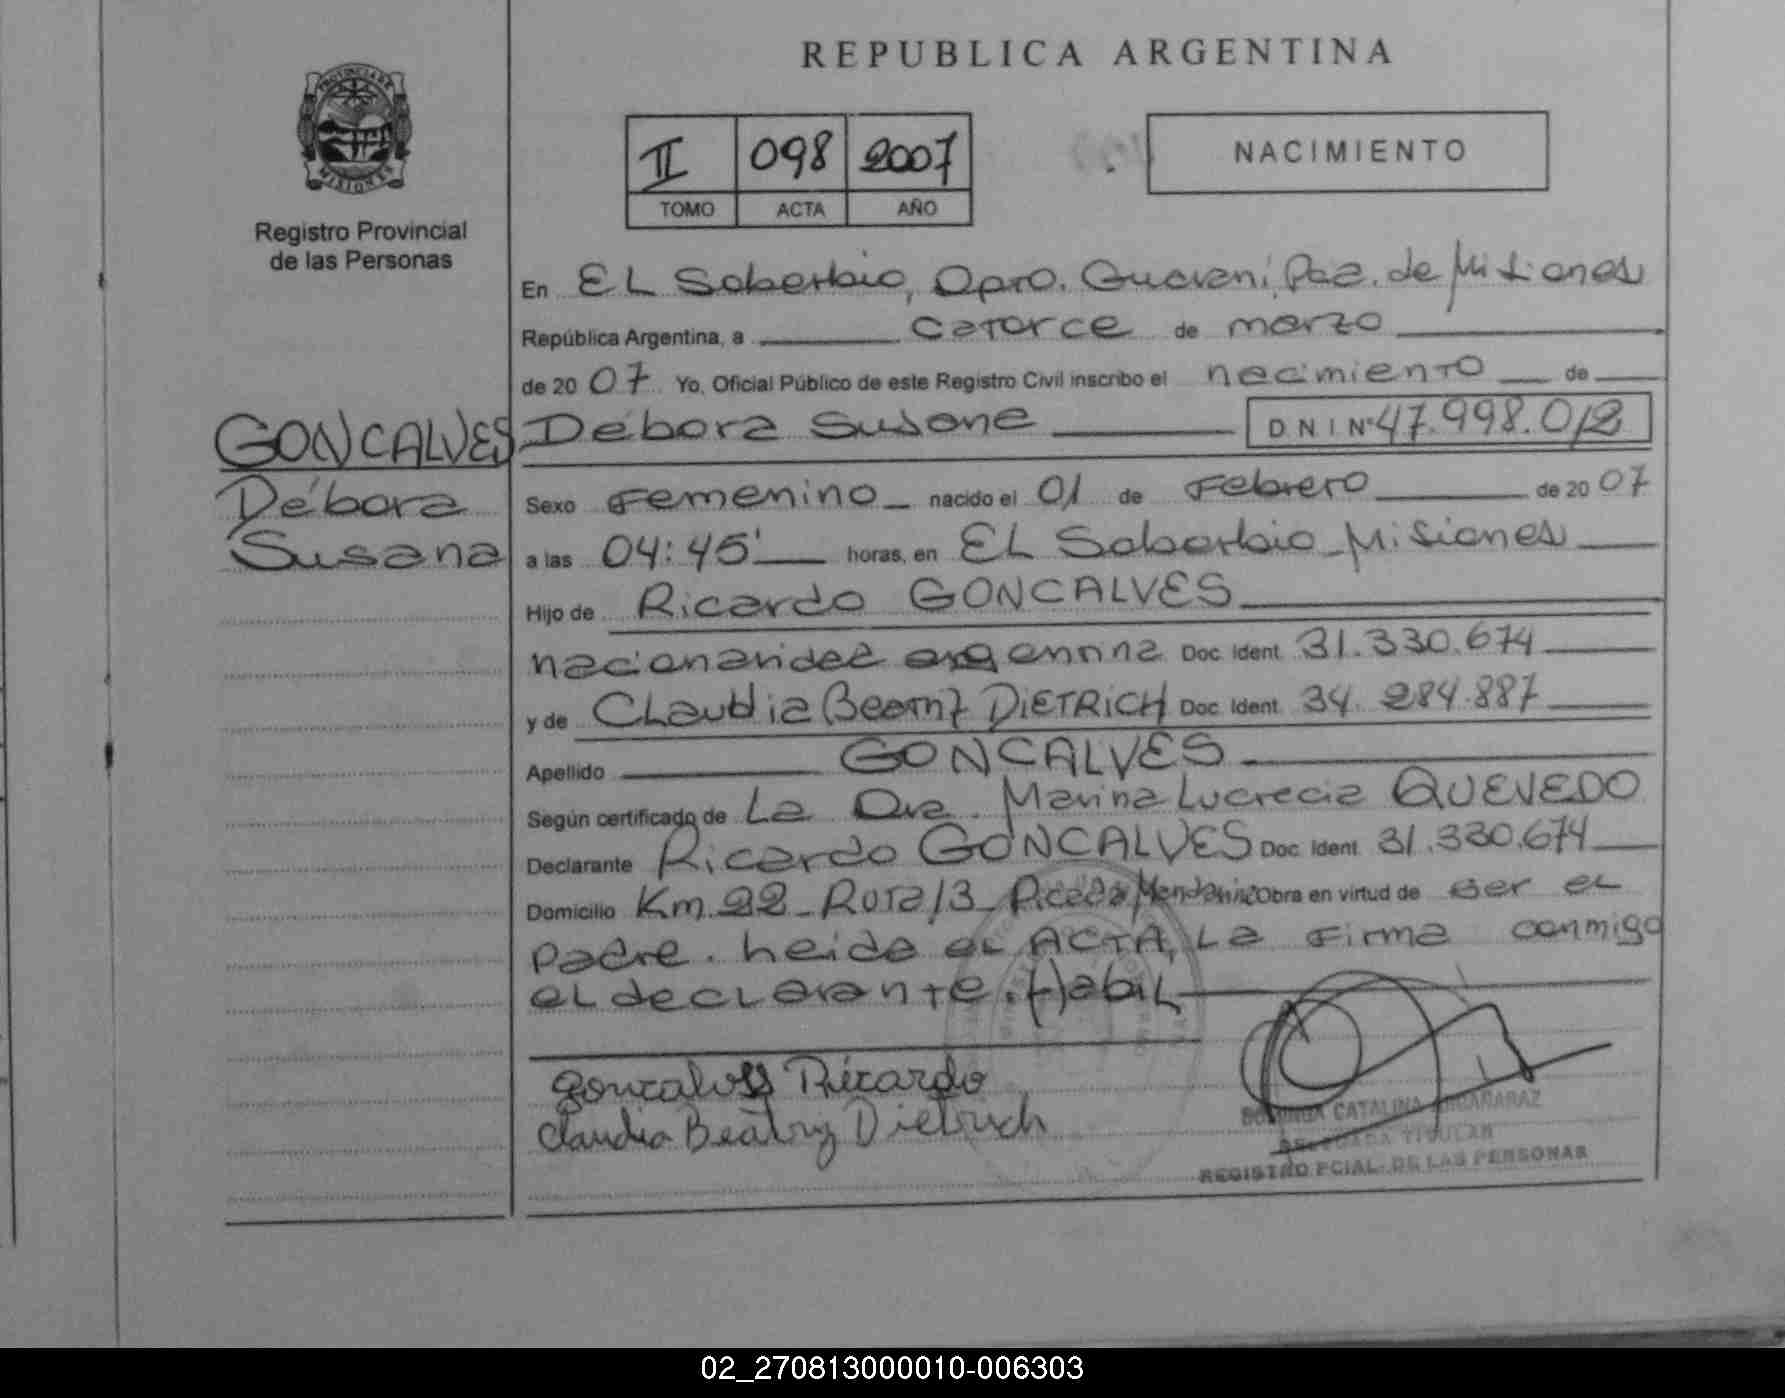 REPUBLICA ARGENTINA
PROVINCIA DE
MISIONES
Registro Provincial
de las Personas
II 098 2007
TOMO ACTA AÑO
NACIMIENTO
En EL Soberbio, Dpto. Guarani, Pcia. de Misiones
República Argentina, a catorce de marzo
de 20 07 Yo, Oficial Público de este Registro Civil inscribo el nacimiento de
GONCALVES
Débora
Susana
Débora Susana DNI Nº 47.998.012
Sexo Femenino nacido el 01 de Febrero de 20 07
a las 04:45' horas, en EL Soberbio Misiones
Hijo de Ricardo GONCALVES
nacionalidad argentina Doc. Ident. 31.330.674
y de Claudia Beatriz DIETRICH Doc. Ident. 34.284.887
Apellido GONCALVES
Según certificado de La Dra. Marina Lucrecia QUEVEDO
Declarante Ricardo GONCALVES Doc. Ident. 31.330.674
Domicilio Km. 22 - Ruta 13 Obra en virtud de ser el
padre. heida el ACTA, La Firma conmigo
el declarante. Habil
Goncalves Ricardo
Claudia Beatriz Dietrich
CATALINA
DELEGADA TITULAR
REGISTRO PCIAL. DE LAS PERSONAS
02_270813000010-006303